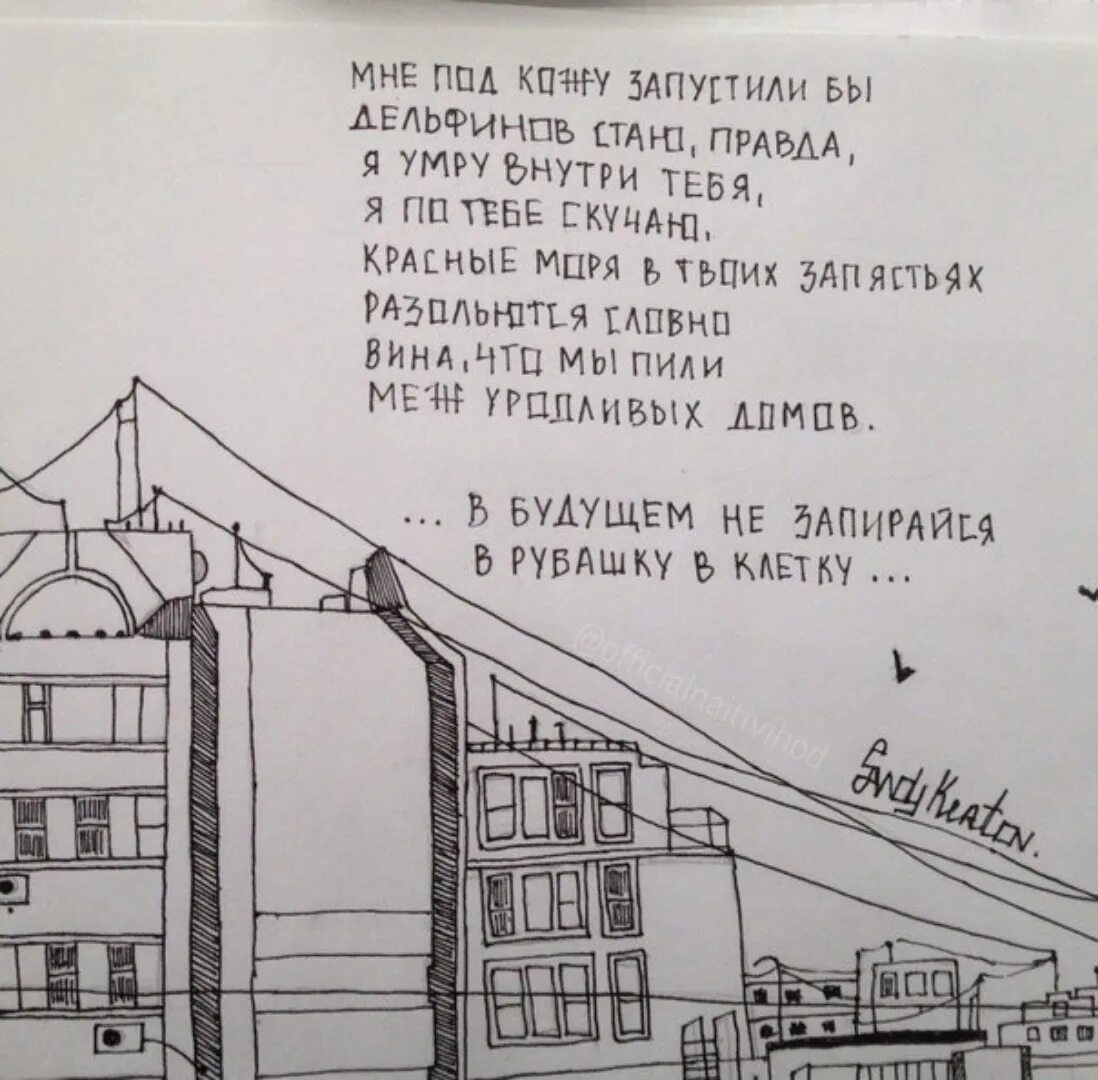 МНЕ ПОД КОЖУ ЗАПУСТИЛИ БЫ
ДЕЛЬФИНОВ СТАЮ, ПРАВДА,
Я УМРУ ВНУТРИ ТЕБЯ,
Я ПО ТЕБЕ СКУЧАЮ,
КРАСНЫЕ МОРЯ В ТВОИХ ЗАПЯСТЬЯХ
РАЗОЛЬЮТСЯ СЛОВНО
ВИНА, ЧТО МЫ ПИЛИ
МЕЖ УРОДЛИВЫХ ДОМОВ.
... В БУДУЩЕМ НЕ ЗАПИРАЙСЯ
В РУБАШКУ В КЛЕТКУ ...
@officialnaitivihod
Endy Keaton.